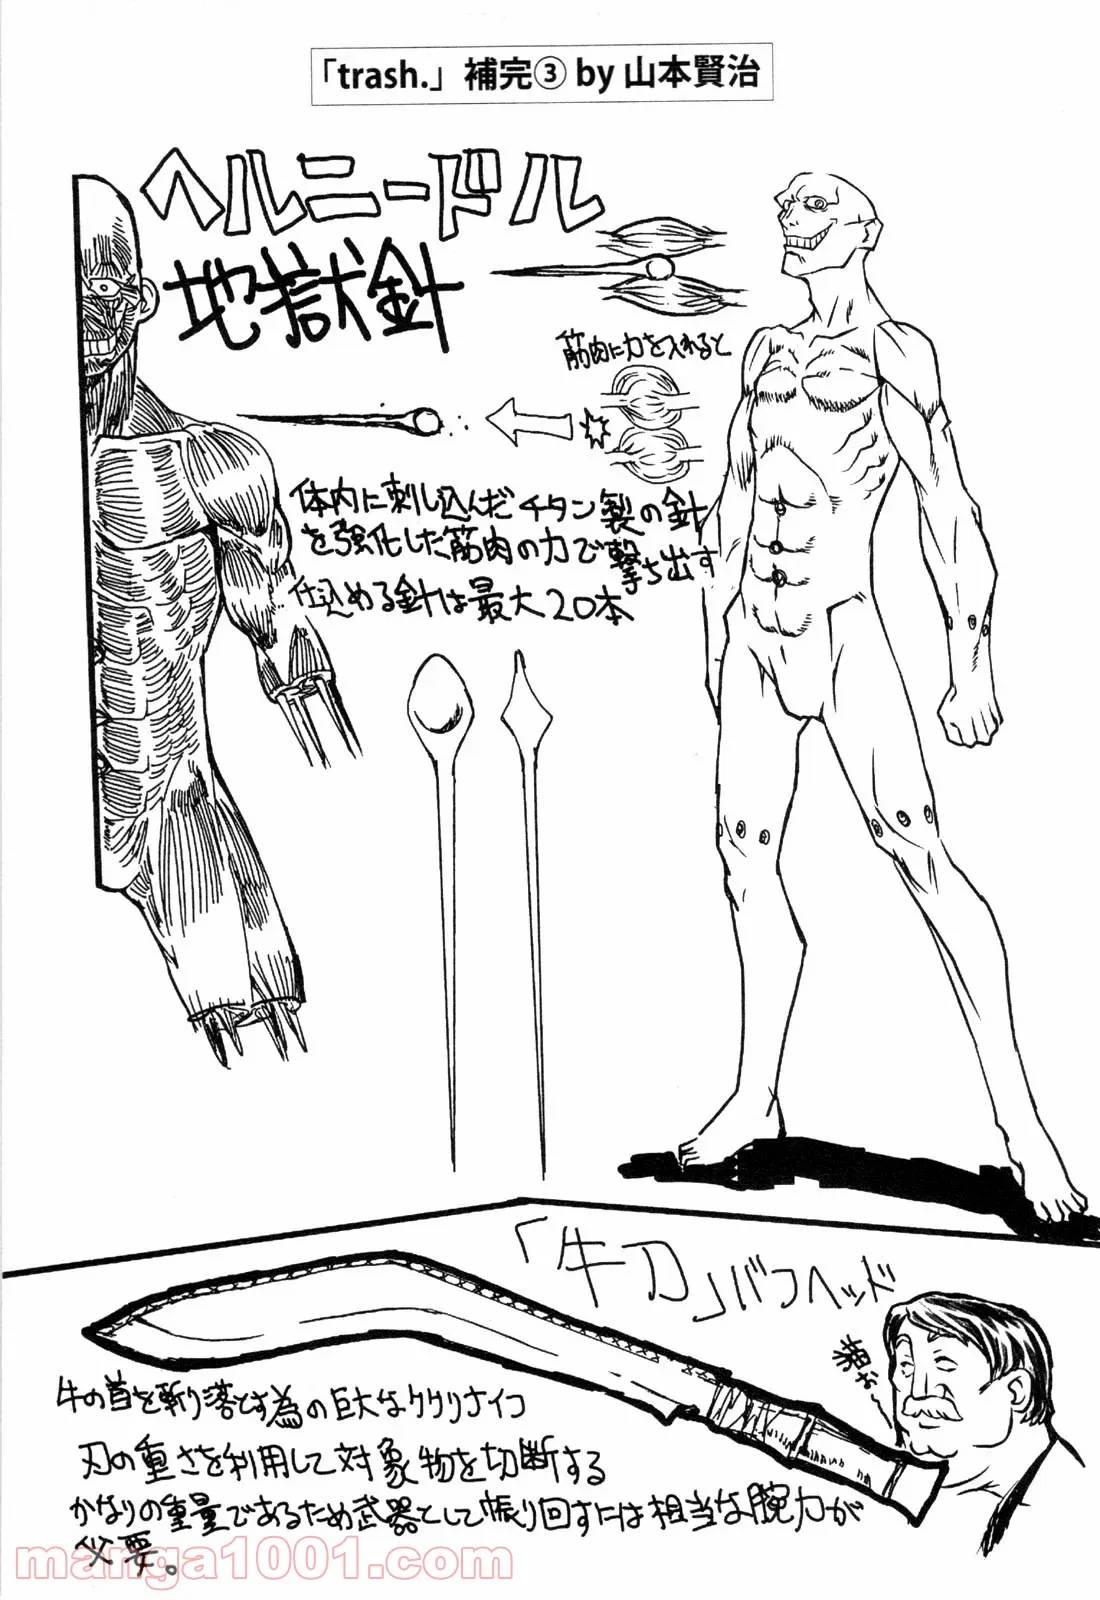 「trash.」補完③ by 山本賢治
ヘルニードル
地獄針
筋肉に力を入れると
体内に刺し込んだチタン製の針
を強化した筋肉の力で撃ち出す
仕込める針は最大20本
「牛刀」バフヘッド
猫が〜
牛の首を斬り落とす為の巨大なククリナイフ
刃の重さを利用して対象物を切断する
かなりの重量であるため武器として振り回すには相当な腕力が
必要。
manga1001.com